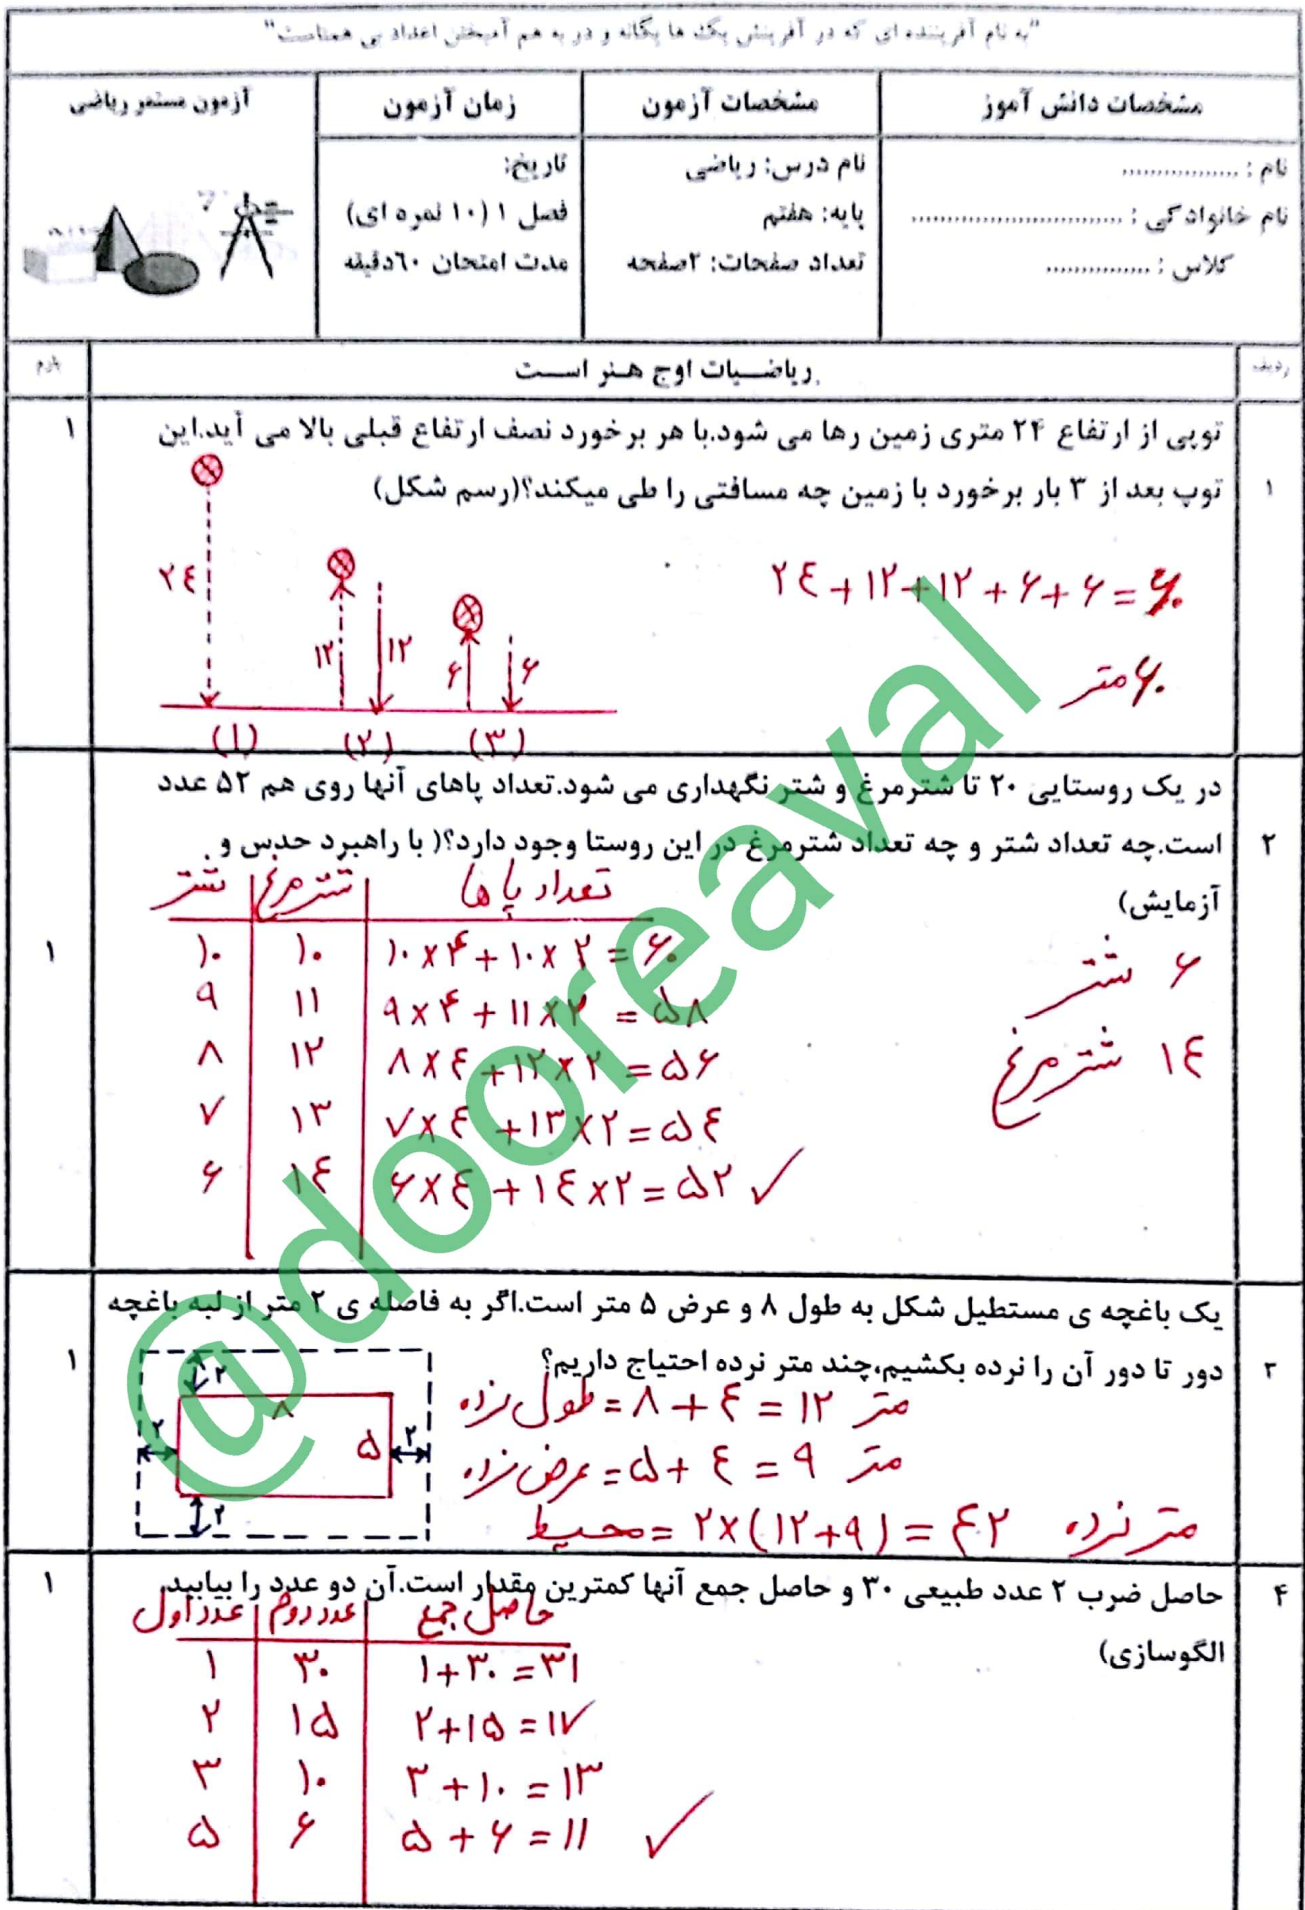 "به نام آفریننده ای که در آفرینش یک ها یگانه و در به هم آمیختن اعداد بی همتاست"
مشخصات دانش آموز
مشخصات آزمون
زمان آزمون
آزمون مستمر ریاضی
نام : .................
نام خانوادگی : ..............................
کلاس : ...............
نام درس: ریاضی
پایه: هفتم
تعداد صفحات: ۲صفحه
تاریخ:
فصل ۱ (۱۰ نمره ای)
مدت امتحان ۶۰دقیقه
ردیف
ریاضــیات اوج هـنر اسـت
بارم
۱
توپی از ارتفاع ۲۴ متری زمین رها می شود.با هر برخورد نصف ارتفاع قبلی بالا می آید.این
توپ بعد از ۳ بار برخورد با زمین چه مسافتی را طی میکند؟(رسم شکل)
۱
۲۴ + ۱۲ + ۱۲ + ۶ + ۶ = ۶۰
۶۰ متر
۲۴
۱۲
۱۲
۶
۶
(۱) (۲) (۳)
۲
در یک روستایی ۲۰ تا شترمرغ و شتر نگهداری می شود.تعداد پاهای آنها روی هم ۵۲ عدد
است.چه تعداد شتر و چه تعداد شترمرغ در این روستا وجود دارد؟( با راهبرد حدس و
آزمایش)
۱
شتر | شترمرغ | تعداد پا ها
۱۰ | ۱۰ | ۱۰×۴+۱۰×۲=۶۰
۹ | ۱۱ | ۹×۴+۱۱×۲=۵۸
۸ | ۱۲ | ۸×۴+۱۲×۲=۵۶
۷ | ۱۳ | ۷×۴+۱۳×۲=۵۴
۶ | ۱۴ | ۶×۴+۱۴×۲=۵۲ ✓
۶ شتر
۱۴ شترمرغ
۳
یک باغچه ی مستطیل شکل به طول ۸ و عرض ۵ متر است.اگر به فاصله ی ۲ متر از لبه باغچه
دور تا دور آن را نرده بکشیم،چند متر نرده احتیاج داریم؟
۱
طول نرده = ۸ + ۴ = ۱۲ متر
عرض نرده = ۵ + ۴ = ۹ متر
محیط = ۲×(۱۲+۹) = ۴۲ متر نرده
۲
۸
۲
۵
۲
۲
۴
حاصل ضرب ۲ عدد طبیعی ۳۰ و حاصل جمع آنها کمترین مقدار است.آن دو عدد را بیابید.
الگوسازی)
۱
عدد اول | عدد دوم | حاصل جمع
۱ | ۳۰ | ۱+۳۰=۳۱
۲ | ۱۵ | ۲+۱۵=۱۷
۳ | ۱۰ | ۳+۱۰=۱۳
۵ | ۶ | ۵+۶=۱۱ ✓
@dooreaval